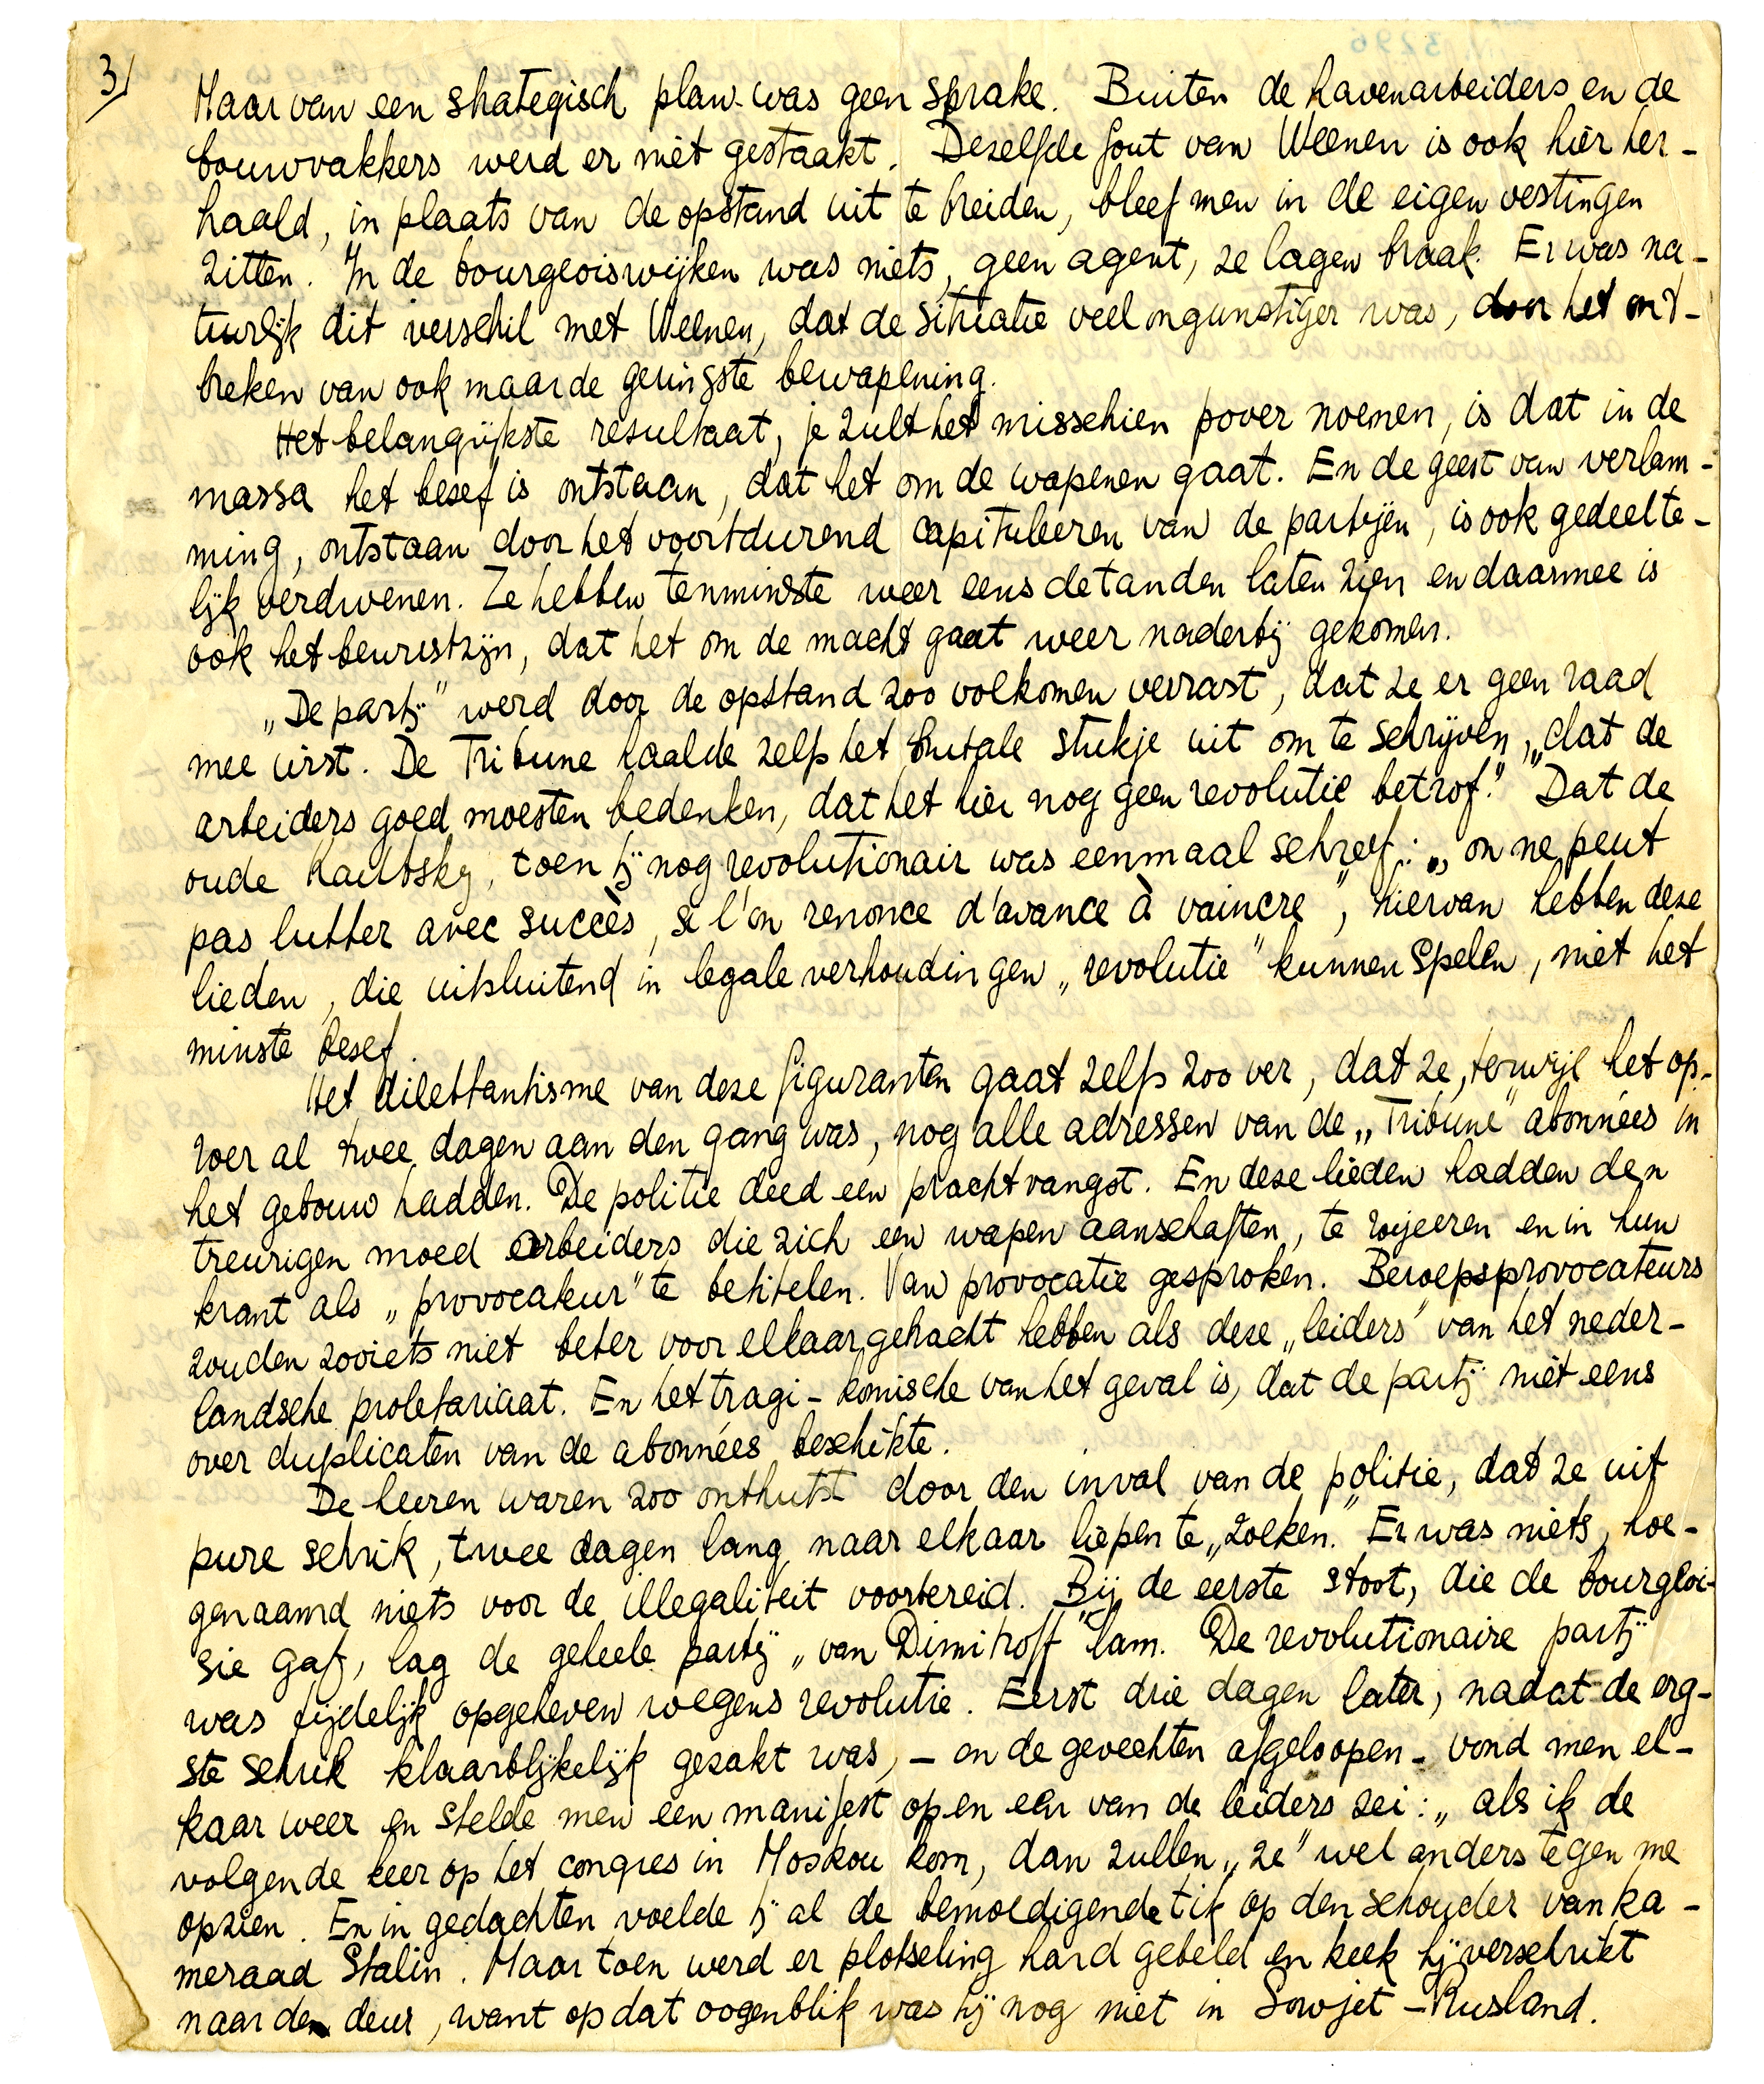 3/
Maar van een strategisch plan was geen sprake. Buiten de havenarbeiders en de
bouwvakkers werd er niet gestaakt. Deselfde fout van Weenen is ook hier her-
haald, in plaats van de opstand uit te breiden, bleef men in de eigen vestingen
zitten. In de bourgeoiswijken was niets, geen agent, ze lagen braak. Er was na-
tuurlijk dit verschil met Weenen, dat de situatie veel ongunstiger was, door het ont-
breken van ook maar de geringste bewapening.
Het belangrijkste resultaat, je zult het misschien pover noemen, is dat in de
massa het besef is ontstaan, dat het om de wapenen gaat. En de geest van verlam-
ming, ontstaan door het voortdurend capituleeren van de partijen, is ook gedeelte-
lijk verdwenen. Ze hebben tenminste weer eens de tanden laten zien en daarmee is
ook het bewustzijn, dat het om de macht gaat weer naderbij gekomen.
„De partij" werd door de opstand zoo volkomen verrast, dat ze er geen raad
mee wist. De Tribune haalde zelfs het brutale stukje uit om te schrijven, „dat de
arbeiders goed moesten bedenken, dat het hier nog geen revolutie betrof." Dat de
oude Kautsky, toen hij nog revolutionair was eenmaal schreef: „on ne peut
pas lutter avec succès, si l'on renonce d'avance à vaincre", hiervan hebben deze
lieden, die uitsluitend in legale verhoudingen „revolutie" kunnen spelen, niet het
minste besef.
Het dilettantisme van deze figuranten gaat zelfs zoo ver, dat ze, terwijl het op-
roer al twee dagen aan den gang was, nog alle adressen van de „Tribune" abonnées in
het gebouw hadden. De politie deed een prachtvangst. En deze lieden hadden den
treurigen moed arbeiders die zich een wapen aanschaften, te royeeren en in hun
krant als „provocateur" te betitelen. Van provocatie gesproken. Beroepsprovocateurs
zouden zooiets niet beter voor elkaar gehacht hebben als deze „leiders" van het neder-
landsche proletariaat. En het tragi-komische van het geval is, dat de partij niet eens
over duplicaten van de abonnées beschikte.
De heeren waren zoo onthutst door den inval van de politie, dat ze uit
pure schrik, twee dagen lang naar elkaar liepen te „zoeken." Er was niets, hoe-
genaamd niets voor de illegaliteit voorbereid. Bij de eerste stoot, die de bourgeoi-
sie gaf, lag de geheele partij „van Dimitroff" lam. De revolutionaire partij
was tijdelijk opgeheven wegens revolutie. Eerst drie dagen later, nadat de erg-
ste schrik klaarblijkelijk gezakt was, - en de gevechten afgeloopen - vond men el-
kaar weer en stelde men een manifest op en een van de leiders zei: „als ik de
volgende keer op het congres in Moskou kom, dan zullen „ze" wel anders tegen me
opzien. En in gedachten voelde hij al de bemoedigende tik op den schouder van ka-
meraad Stalin. Maar toen werd er plotseling hard gebeld en keek hij verschrikt
naar de deur, want op dat oogenblik was hij nog niet in Sowjet-Rusland.